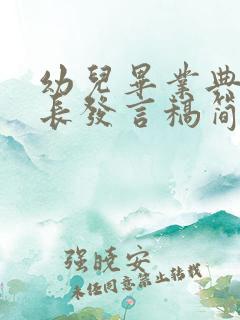 幼兒畢業典
長發言稿簡
强曉安
未经同意禁止转载